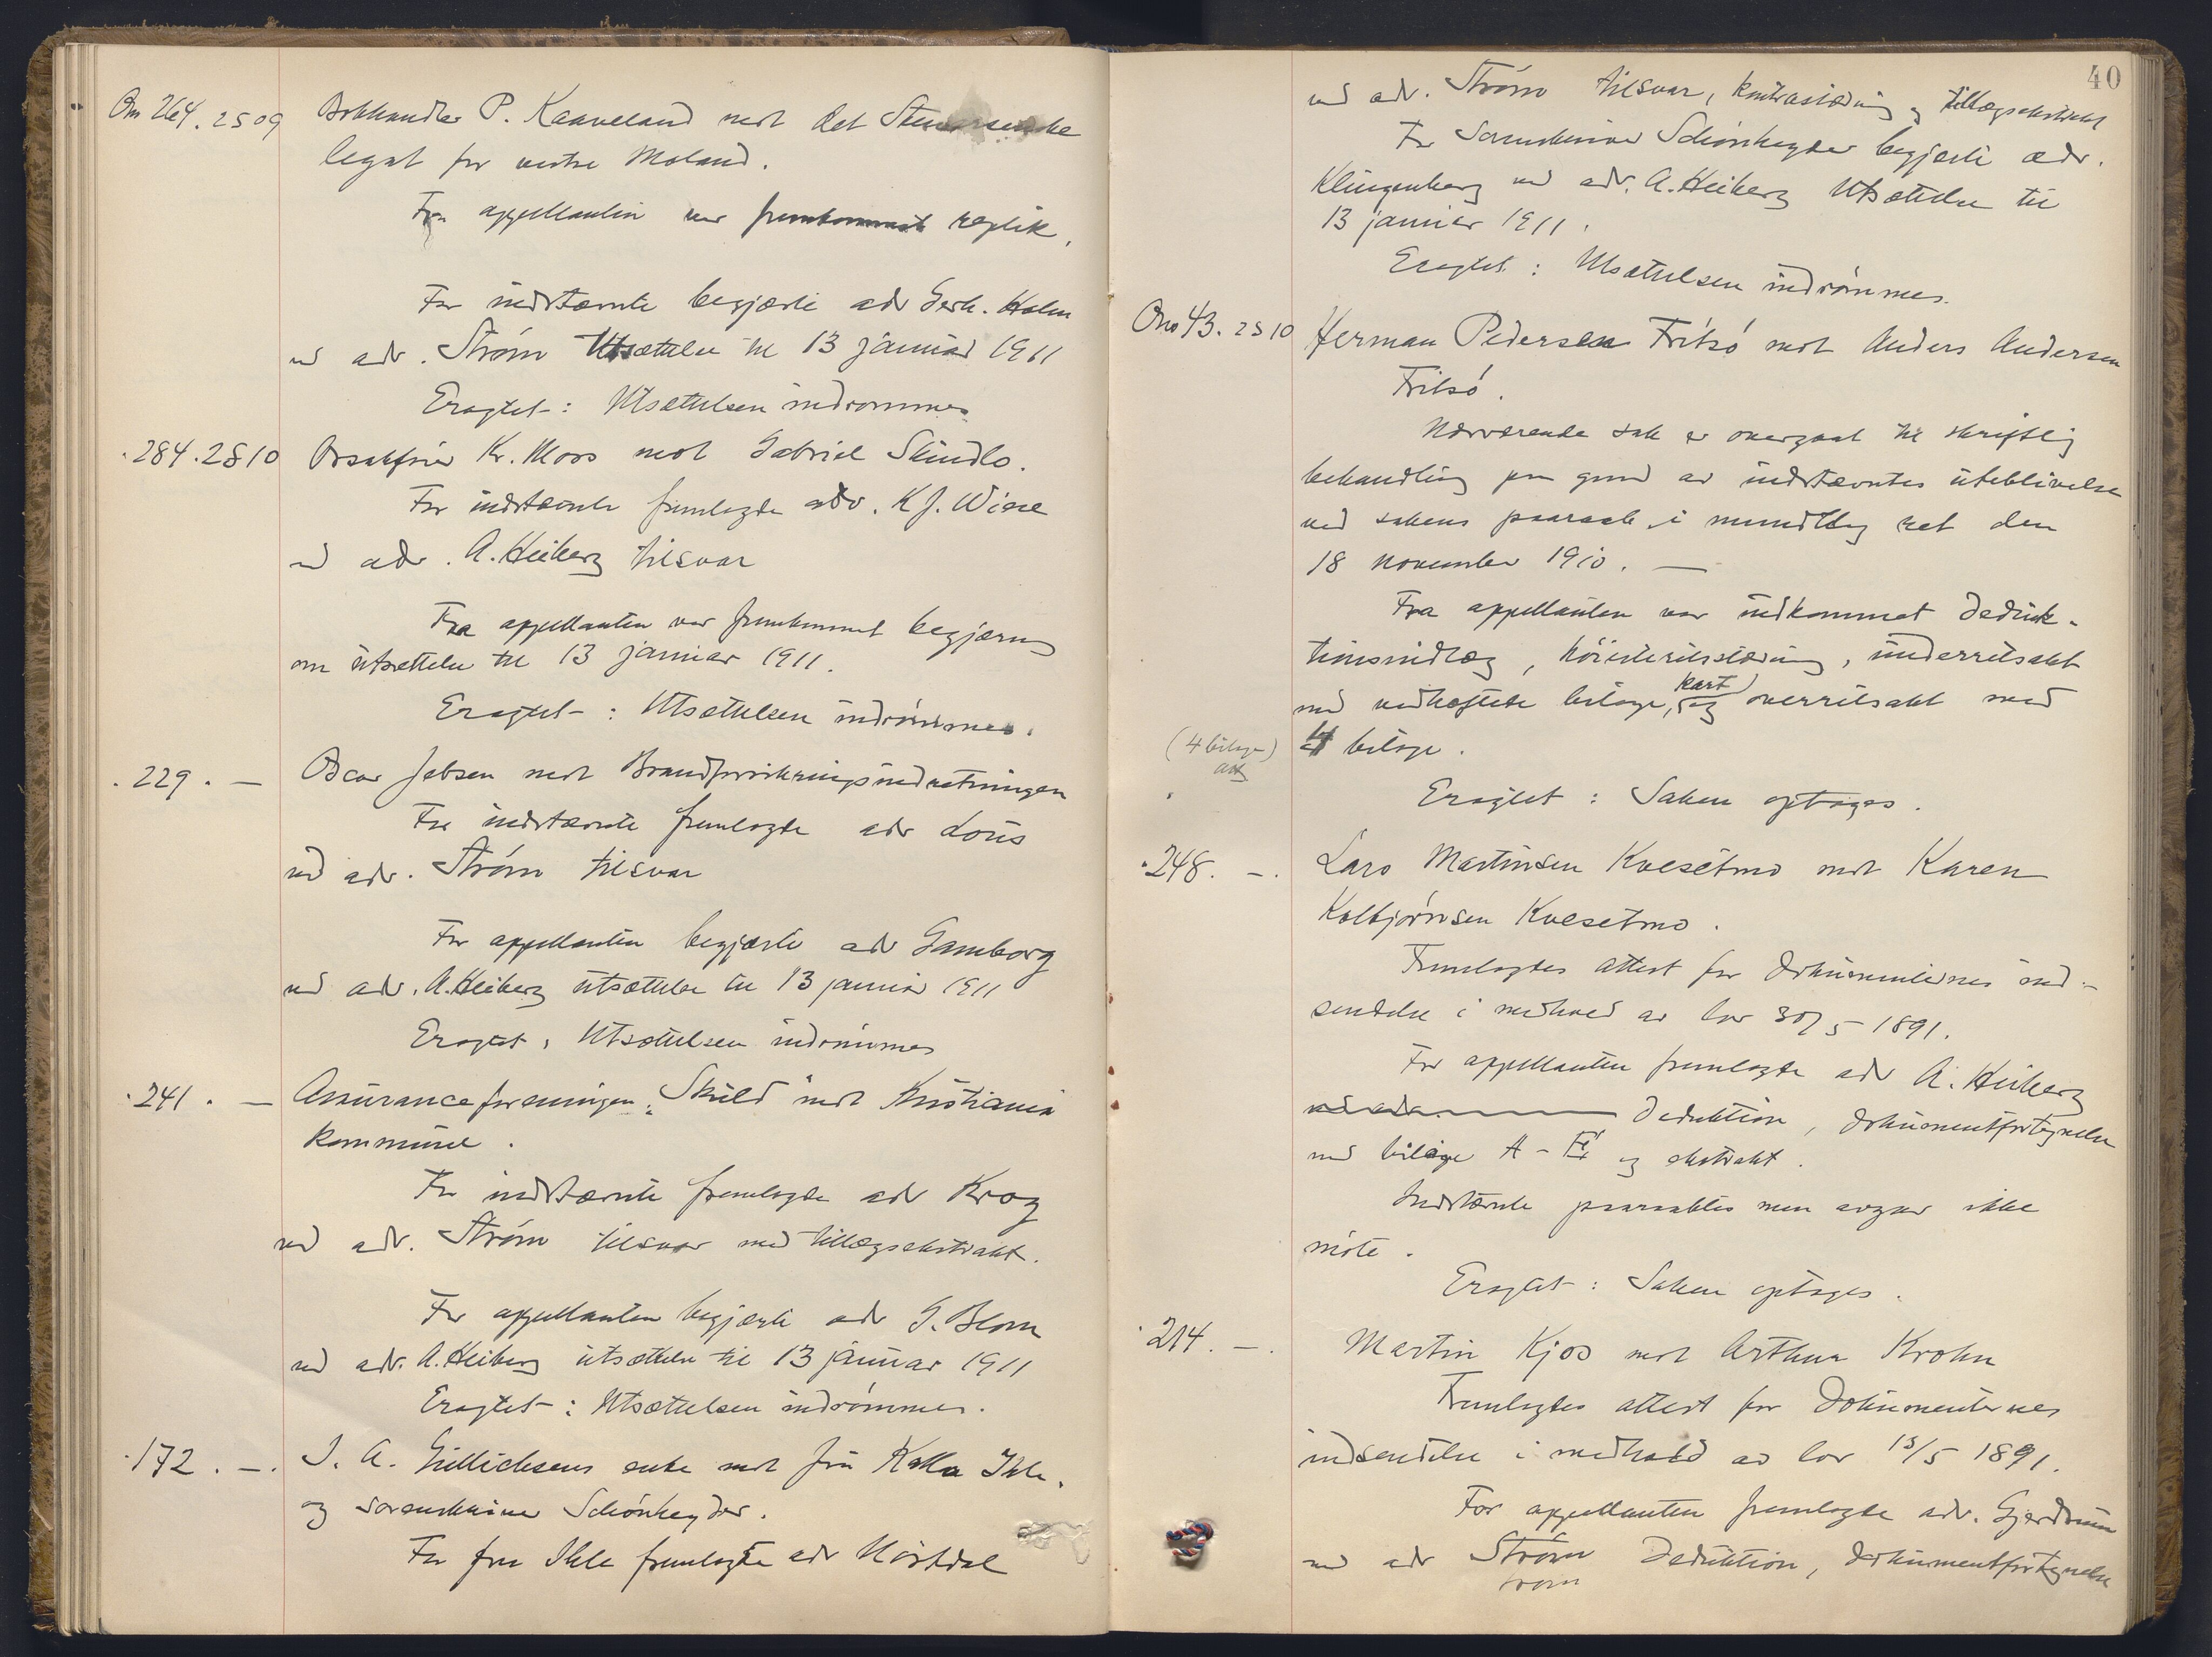 Om 264. 2S 09 Bokhandler P. Kaaveland mot det
legat for vestre Moland.
Fra appellanten var fremkommet replik.
For indstævnte begjærte adv Gerh. Holm
ved adv. Strøm Utsættelse til 13 januar 1911
Eragtet: Utsættelsen indrømmes
284. 2S 10 Orsakfører Kr. Moss mot Gabriel Skindlo.
For indstævnte fremlagde adv. K J. Wiese
ved adv. A. Heiberg tilsvar
Fra appellanten var fremkommet begjæring
om utsættelse til 13 januar 1911.
Eragtet: Utsættelsen indrømmes.
229. — Oscar Jebsen mot Brandforsikringsindretningen
For indstævnte fremlagde adv Lous
ved adv. Strøm tilsvar
For appellanten begjærte adv Gamborg
ved adv. A. Heiberg utsættelse til 13 januar 1911
Eragtet: Utsættelsen indrømmes
241. — Assuranceforeningen "Skuld" mot Kristiania
kommune.
For indstævnte fremlagde adv Krog
ved adv. Strøm tilsvar med tillægsekstrakt.
For appellanten begjærte adv G. Blom
ved adv. A. Heiberg utsættelse til 13 januar 1911
Eragtet: Utsættelsen indrømmes.
172. —. I. A. Gullichsens enke mot fru Kalla Ihle.
og sorenskriver Schönheyder.
For fru Ihle fremlagde adv Mörkdal
40
ved adv. Strøm tilsvar, kontrastævning og tillægsekstrakt
For Sorenskriver Schönheyder begjærte adv.
Klingenberg ved adv. A. Heiberg Utsættelse til
13 januar 1911.
Eragtet: Utsættelsen indrømmes.
Om 43. 2S 10 Herman Pedersen Fritsö mot Anders Andersen
Fritsö.
Nærværende sak er overgaat til skriftlig
behandling paa grund av indstævntes uteblivelse
ved sakens paaraab i mundtlig ret den
18 november 1910. —
Fra appellanten var indkommet deduk-
tionsindlæg, höiesteretsstævning, underretsakt
med vedheftede bilage, kart og overretsakt med
(4 bilage) 4 bilage.
Eragtet: Saken optages.
248. —. Lars Martinsen Kvesetmo mot Karen
Kolbjørnsen Kvesetmo.
Fremlagdes attest for dokumenternes ind-
sendelse i medhold av lov 30/5 1891.
For appellanten fremlagde adv A. Heiberg
ved adv. deduktion, dokumentfortegnelse
med bilage A - E og ekstrakt.
Indstævnte paaraabtes men avgav ikke
møte.
Eragtet: Saken optages.
214. —. Martin Kjos mot Arthur Krohn
Fremlagdes attest for Dokumenternes
indsendelse i medhold av lov 13/5 1891.
For appellanten fremlagde adv. Gjerdrum
ved adv Strøm Deduktion, dokumentfortegnelse